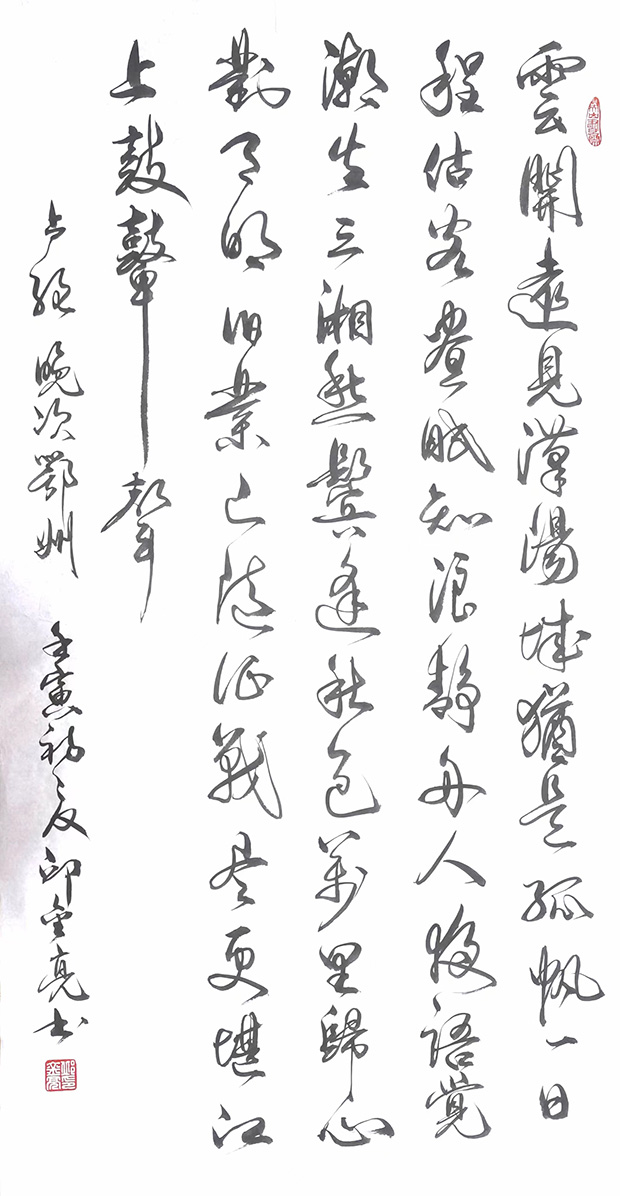 雲開遠見漢陽城猶是孤帆一日
程估客晝眠知浪靜舟人夜語覺
潮生三湘愁鬢逢秋色萬里歸心
對月明旧業已隨征戰尽更堪江
上鼓鼙聲
卢纶 晚次鄂州 壬寅初夏 印金亮书